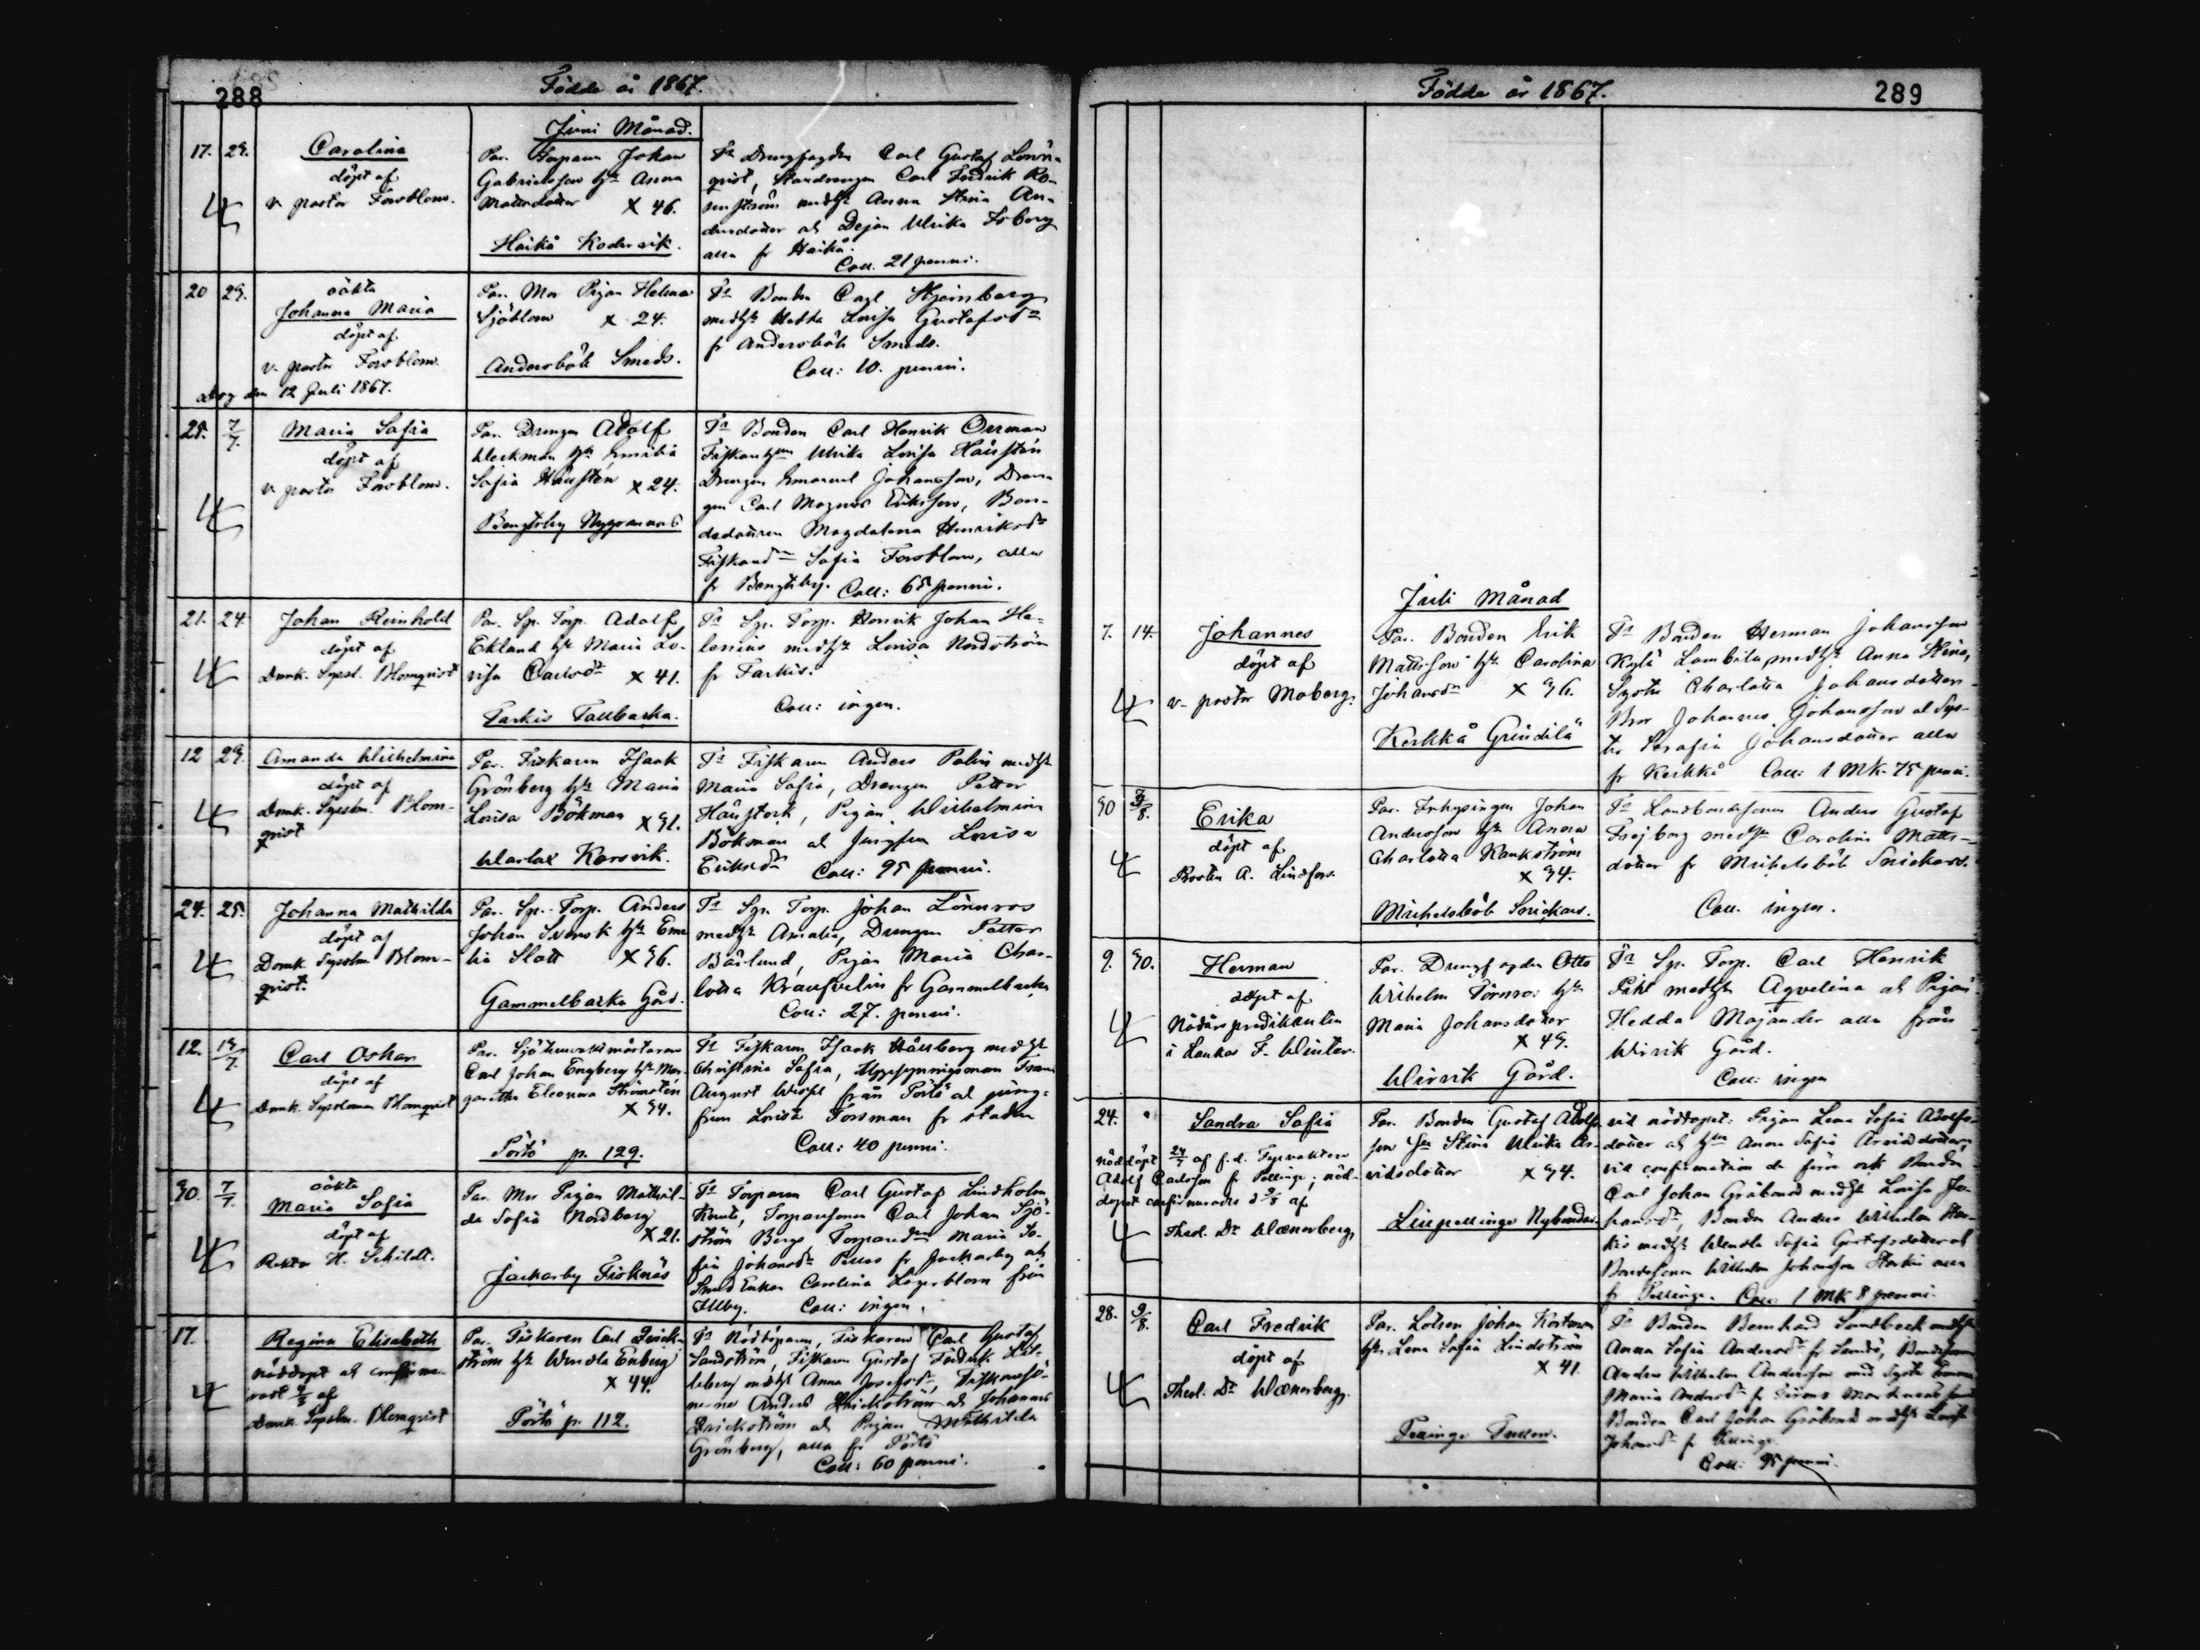 288
Födde år 1867.
Juni Månad.
17. 23.
Carolina
döpt af
v. pastor Forsblom.
Par. Torparen Johan
Gabrielsson hu Anna
Mattsdotter X 46.
Haikå Kodervik.
Carl Gustaf Lönn-
qvist, Carl Fredrik Ro-
senström medh Anna Stina An-
dersdotter och Dejan Ulrika Forberg
alla fr Haikå.
Coll. 21 penni.
20 23.
oäkta
Johanna Maria
döpt af
v. pastor Forsblom.
Dog den 12 Juli 1867.
Par. Mor Pigan Helena
Sjöblom X 24.
Andersböle Smeds.
Fr Bonden Carl Stjernberg
medh Hedda Lovisa Gustafsdr
fr Andersböle Smeds.
Coll: 10. penni.
25. 7/7.
Maria Sofia
döpt af
v. pastor Forsblom.
Par. Drengen Adolf
Weckman hu Emilia
Sofia Häusten X 24.
Bengtsby Nygrannas
Fr Bonden Carl Henrik Öerman
Ulrika Lovisa Häusten
Drengen Emanuel Johansson, Dren-
gen Carl Magnus Eriksson, Bon-
dedottren Magdalena Henriksdr
Sofia Forsblom, alla
fr Bengtsby. Coll: 65 penni.
21. 24.
Johan Reinhold
döpt af
Domk. Syssl. Blomqvist
Par. Sp. Torp. Adolf
Eklund hu Maria Lo-
visa Carlsdr X 41.
Tarkis Tallbacka.
Fr Sp. Torp. Henrik Johan He-
lenius medh Lovisa Nordström
fr Tarkis.
Coll: ingen.
12 23.
Amanda Wilhelmina
döpt af
Domk. Sysslm. Blom-
qvist
Par. Fiskaren Isaak
Grönberg hu Maria
Lovisa Bökman X 31.
Warlax Korsvik.
Fr Fiskaren Anders Palin medh
Maria Sofia, Drengen Petter
Pigan Wilhelmina
Bökman och Jungfrun Lovisa
Eriksdr Coll: 95 penni.
24. 25.
Johanna Mathilda
döpt af
Domk. Sysslm Blom-
qvist.
Par. Sp. Torp. Anders
Johan Svensk hu Eme
lia Slätt X 36.
Gammelbacka Gård.
Fr Sp. Torp. Johan Lönnros
medh Amalia, Drengen Petter
Bärlund, Pigan Maria Char-
lotta Krausvelin fr Gammelbacka
Coll: 27. penni.
12. 14/7
Carl Oskar
döpt af
Domk. Sysslman Blomqvist
Par.
Carl Johan Engberg hu Mar-
garetha Eleonora Strömsten
X 34.
Pörtö p. 129.
Fr Fiskaren Isaak Hällberg medh
Christina Sofia,
August från Pörtö och jung-
frun Lovisa Forsman fr staden
Coll: 40 penni.
30. 7/7.
oäkta
Maria Sofia
döpt af
Rektor H. Schildt.
Par. Mor Pigan Mathil-
da Sofia Nordberg
X 21.
Jackarby Fisknäs
Fr Torparen Carl Gustaf Lindholm
Torparesonen Carl Johan Sjö-
ström Maria So-
fia Johansdr fr Jackarby och
Carolina Lagerblom från
Illby. Coll: ingen.
17.
Regina Elisabeth
nöddöpt och confirme-
rad af
Domk. Sysslm. Blomqvist
Par. Fiskaren Carl Drick-
ström hu Wendla Enberg
X 44.
Pörtö p. 112.
Fr Fiskaren Carl Gustaf
Sandström, Fiskaren Gustaf Fredrik
medh Anna Josefsdr,
Anders Drickström och Johannes
Drickström och Pigan Mathilda
Grönberg, alla fr Pörtö
Coll: 60 penni.
Födde år 1867.
289
Juli Månad
7. 14.
Johannes
döpt af
v. pastor Moberg.
Par. Bonden Erik
Mattsson hu Carolina
Johansdr X 36.
Kerkkå Grindilä
Fr Bonden Herman Johansson
medh Anna Stina,
Charlotta Johansdotter
Bror Johannes Johansson och Sys-
ter Serafia Johansdotter alla
fr Kerkkå Coll: 1 Mk. 75 penni.
30 3/8.
Erika
döpt af
Prosten A. Lindfors.
Par. Inhysingen Johan
Andersson hu Anna
Charlotta Rankström
X 34.
Mickelsböle Snickars.
Fr Landbondesonen Anders Gustaf
Frejborg medh Carolina Matts-
dotter fr Mickelsböle Snickars.
Coll. ingen.
9. 30.
Herman
döpt af
Nödårspredikanten
F. Winter.
Par. Drengfogden Otto
Wilhelm Törnros hu
Maria Johansdotter
X 43.
Wirvik Gård.
Fr Sp. Torp. Carl Henrik
Pihl medh Aqvelina och Pigan
Hedda Majander alla från
Wirvik Gård.
Coll: ingen
24.
Sandra Sofia
nöddöpt af f.d. Fyrvaktaren
Adolf Carlsson fr Pellinge; nöd-
dopet confirmerades af
Theol. Dr Wænerberg
Par. Bonden Gustaf Adolfs-
son hu Stina Ulrika Ar-
vidsdotter X 34.
Lillpellinge Nybondas
vid nöddopet: Pigan Lena Sofia Adolfs-
dotter och Anna Sofia Arvidsdotter
vid confirmation de förra och Bonden
Carl Johan Gråbend medh Lovisa Jo-
hansdr, Bonden Anders Wilhelm
medh Wendla Sofia Gustafsdotter och
Bondesonen Wilhelm Johansson alla
fr Pellinge. Coll: 1 Mk 8 penni.
28. 9/8.
Carl Fredrik
döpt af
Theol. Dr Wænerberg.
Par. Lotsen Johan
hu Lena Sofia Lindström
X 41.
Fr Bonden Bernhard Sundbeck medh
Anna Sofia Andersdr fr Sundö,
Anders Wilhelm Andersson
Maria Andersdr
Bonden Carl Johan Gråbend medh Lovisa
Johansdr
Coll: 95 penni.